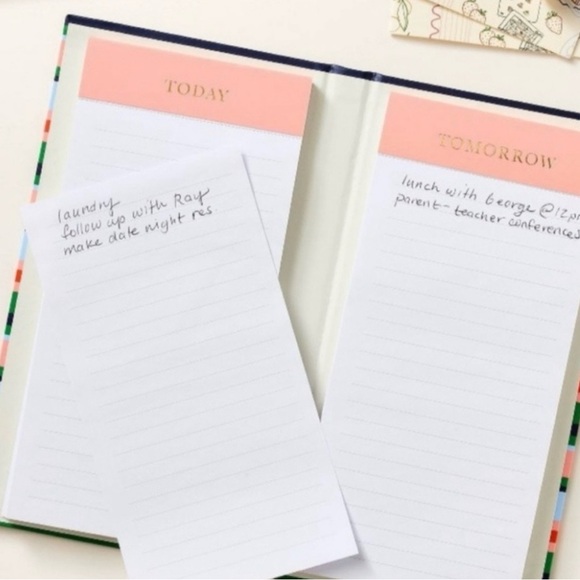 TODAY
laundry
follow up with Ray
make date night res.
TOMORROW
lunch with George @12pm
parent-teacher conferences